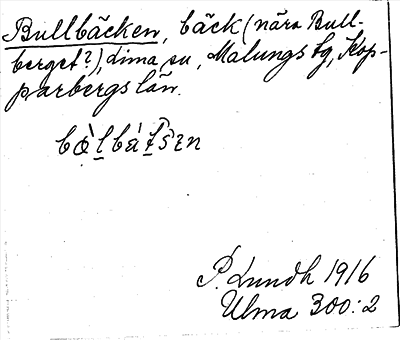 Bullbäcken, bäck (nära Bull-
berget?), Lima sn, Malungs tg, Kop-
parbergs län.
P. Lundh 1916
Ulma 300:2